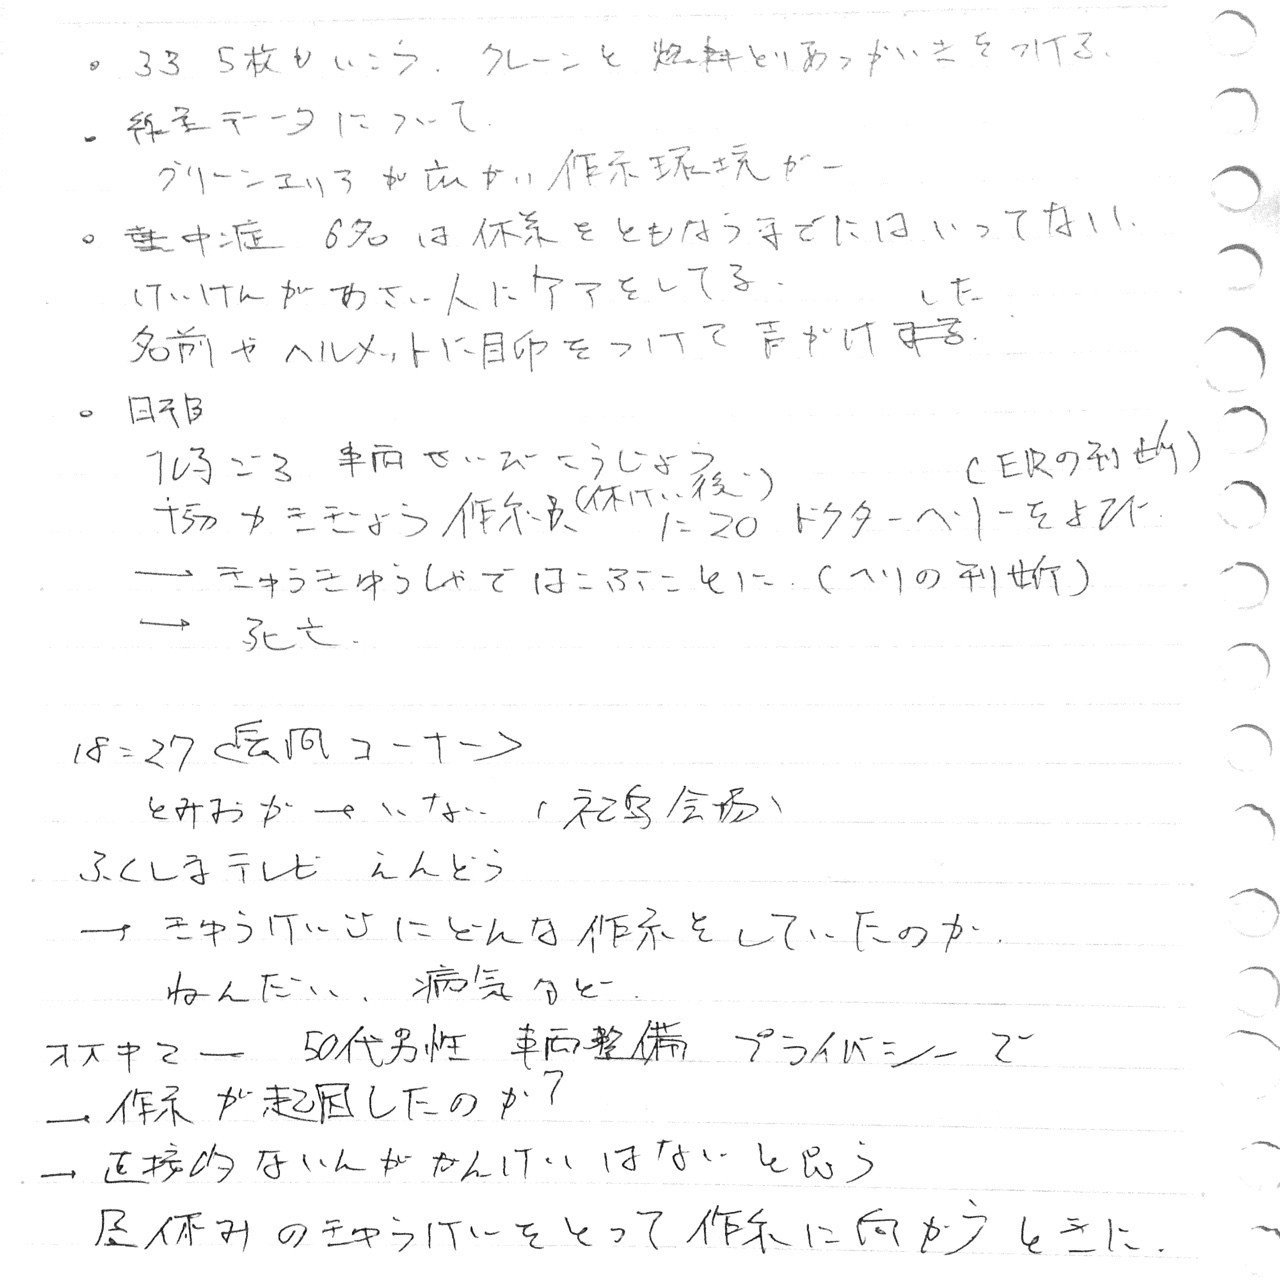 ・33 5枚もいこう. クレーンと 燃料とりあつかいきをつける.
・線量データについて.
グリーンエリアが広がい 作業環境がー
・熱中症 6名は休業をともなうまでにはいってない.
けいけんがあさい人にケアをしてる.
した
名前やヘルメットに目印をつけて声がけ
・
車両せいびこうじょう (ERの判断)
(休けい後)
きぎょう 作業員 に20 ドクターヘリーをよびに.
→ きゅうきゅうしゃではこぶことに. (ヘリの判断)
→ 死亡.
18=27 <質問コーナー>
とみおか → いない (福島会場)
ふくしまテレビ えんどう
→ きゅうけいじにどんな作業をしていたのか.
ねんだい、病気など.
オオヤマー 50代男性 車両整備 プライバシーで
→ 作業が起因したのか?
→ 直接的ないんがかんけいはないと思う
昼休みのきゅうけいをとって作業に向かうときに.